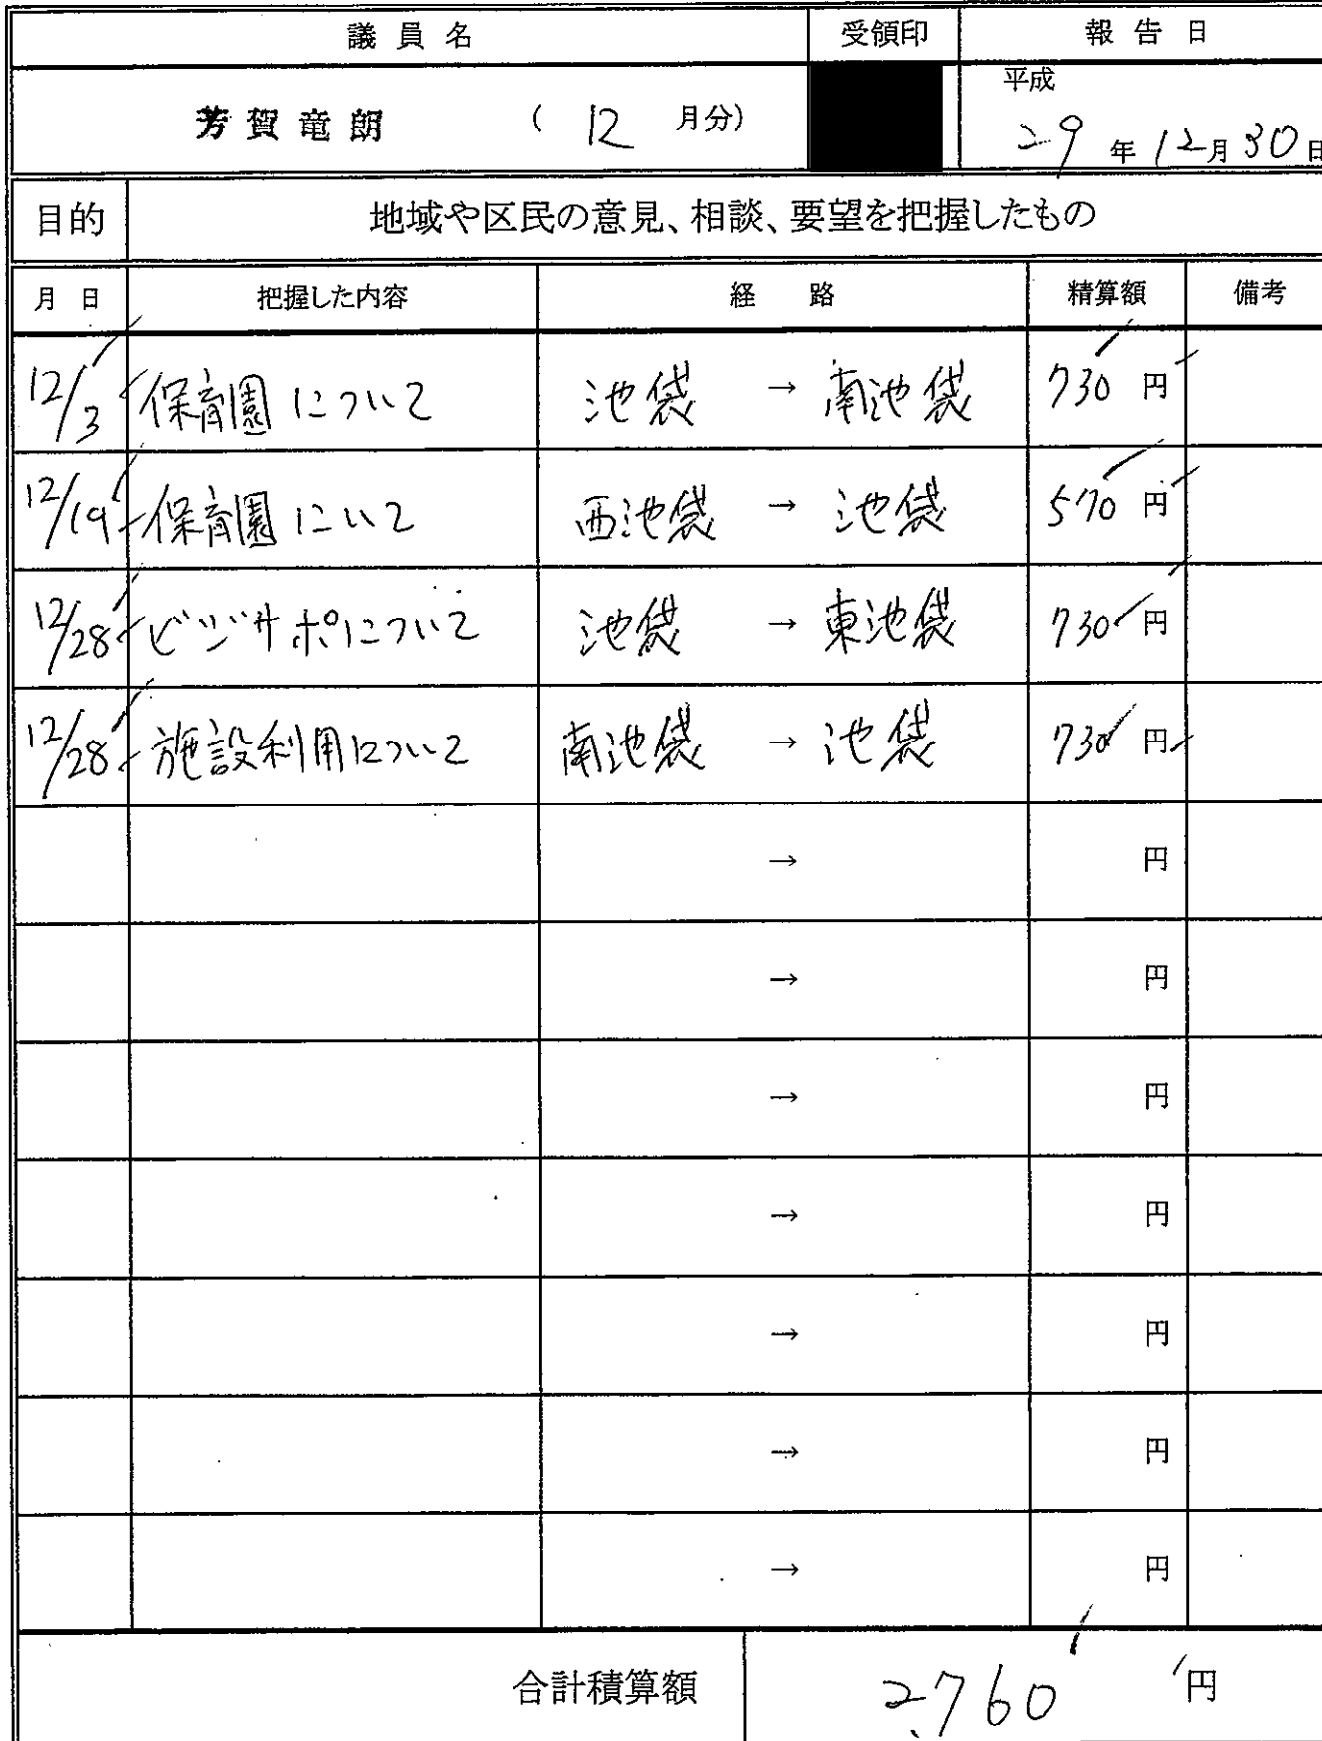 議員名 受領印 報告日
芳賀竜朗 ( 12 月分) 平成 29 年 12月 30日
目的 地域や区民の意見、相談、要望を把握したもの
月日 把握した内容 経路 精算額 備考
12/3 保育園について 池袋 → 南池袋 730 円
12/19 保育園にいて 西池袋 → 池袋 570 円
12/28 ビジサポについて 池袋 → 東池袋 730 円
12/28 施設利用について 南池袋 → 池袋 730 円
→ 円
→ 円
→ 円
→ 円
→ 円
→ 円
→ 円
合計積算額 2,760 円